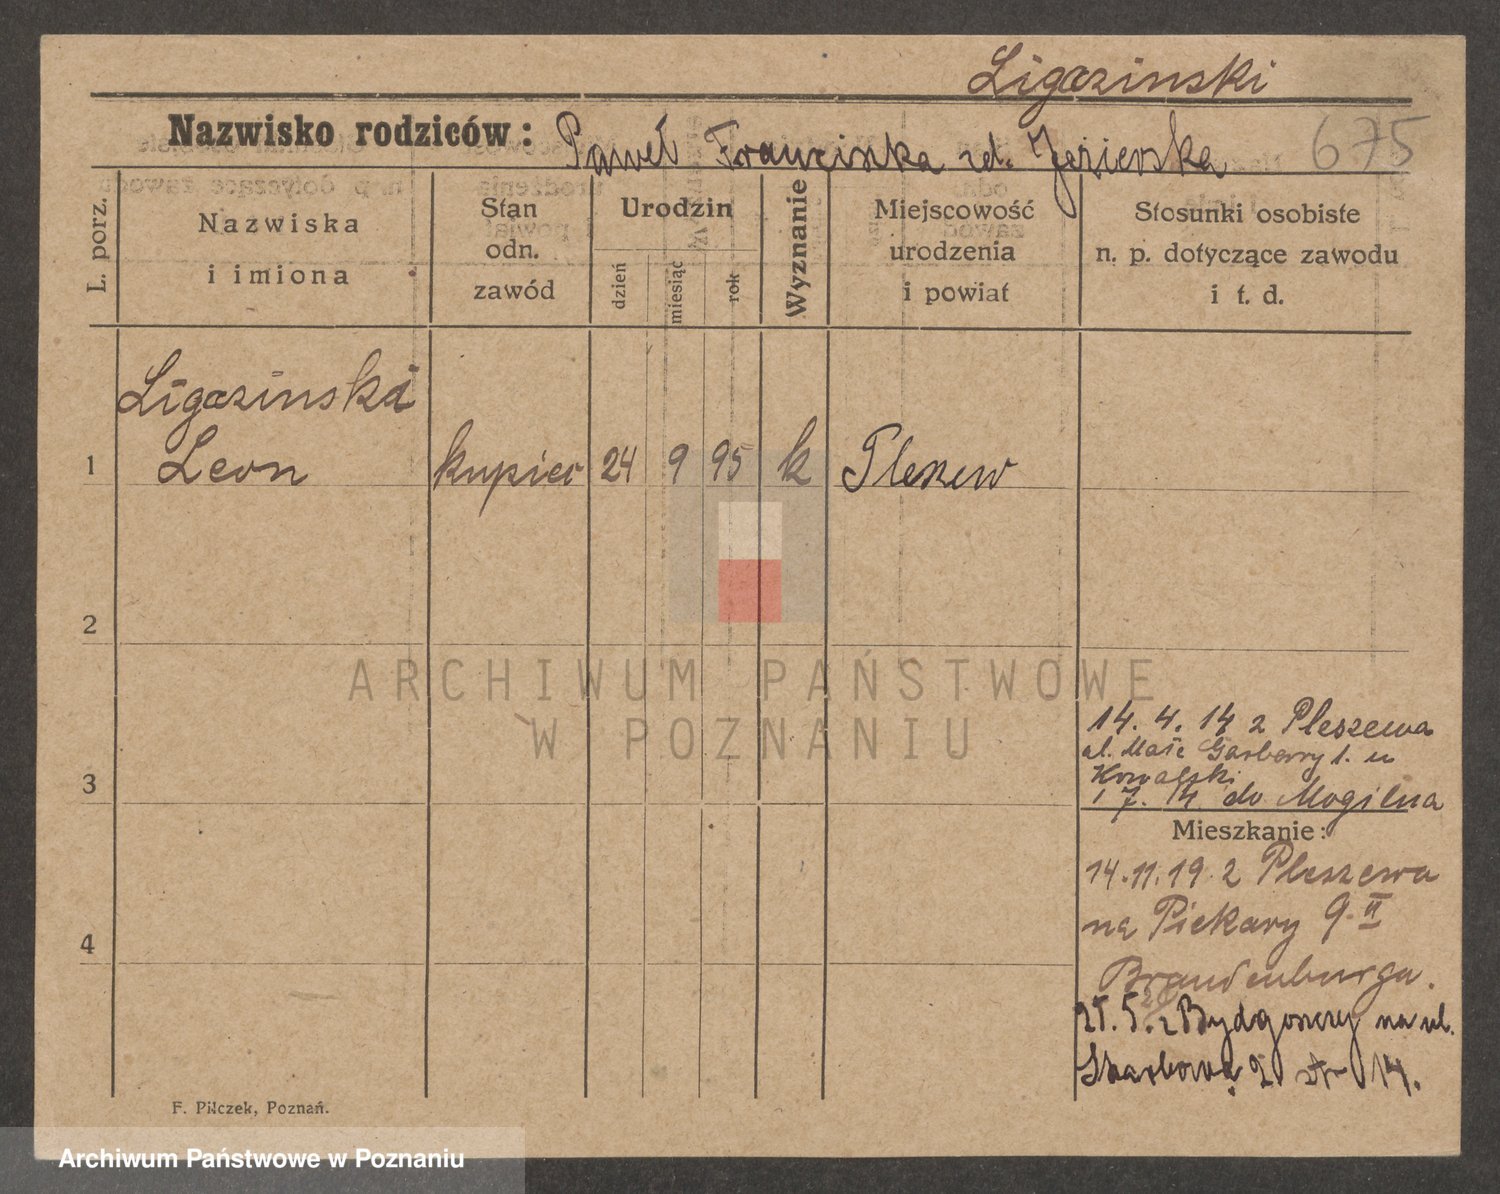 Ligozinski
Nazwisko rodziców: Paweł Franciszka zd. Jezierska 675
L. porz.
Nazwiska
i imiona
Stan
odn.
zawód
Urodzin
dzień
miesiąc
rok
Wyznanie
Miejscowość
urodzenia
i powiat
Stosunki osobiste
n. p. dotyczące zawodu
i t. d.
Ligozinski
1 Leon kupiec 24 9 95 k Pleszew
2
3
4
ARCHIWUM PAŃSTWOWE
W POZNANIU
14. 4. 14 z Pleszewa
ul. Małe Garbary 1. u
Kowalski
1 7. 14. do Mogilna
Mieszkanie:
14.11.19 z Pleszewa
na Piekary 9. II
Brandenburga.
5. z Bydgoszczy na ul.
Skarbową 14.
F. Pilczek, Poznań.
Archiwum Państwowe w Poznaniu